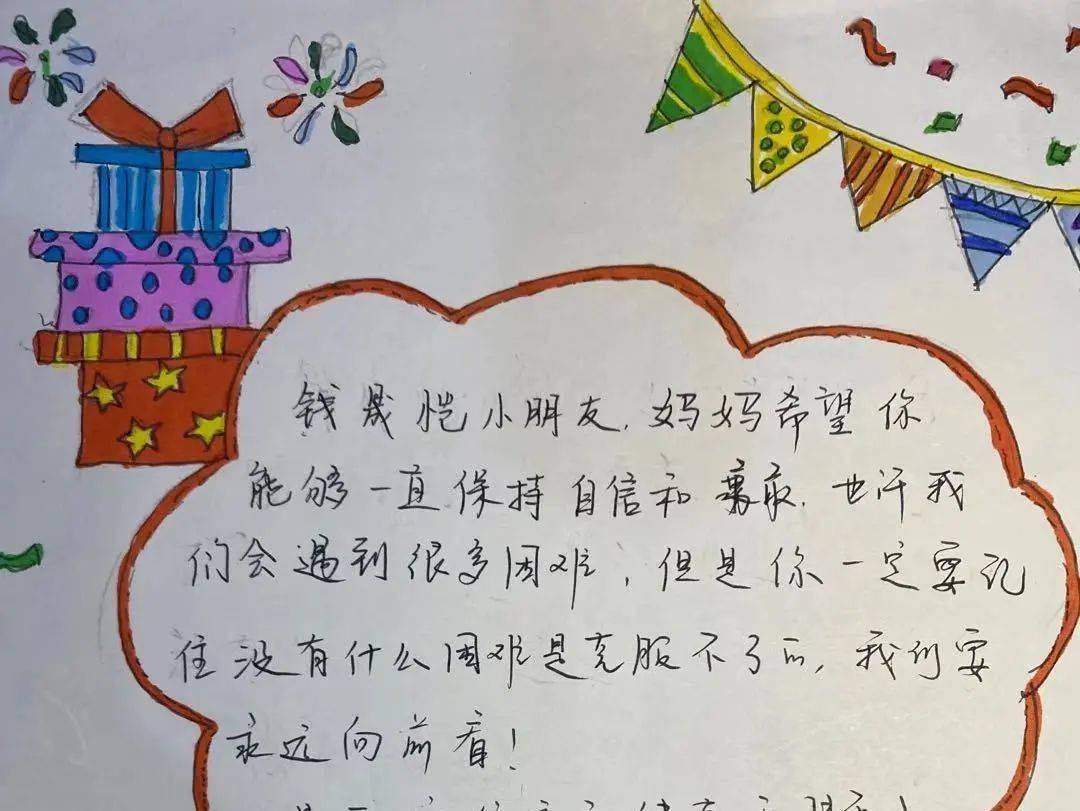 钱晟恺小朋友，妈妈希望你
能够一直保持自信和勇敢，也许我
们会遇到很多困难，但是你一定要记
住没有什么困难是克服不了的，我们要
永远向前看！